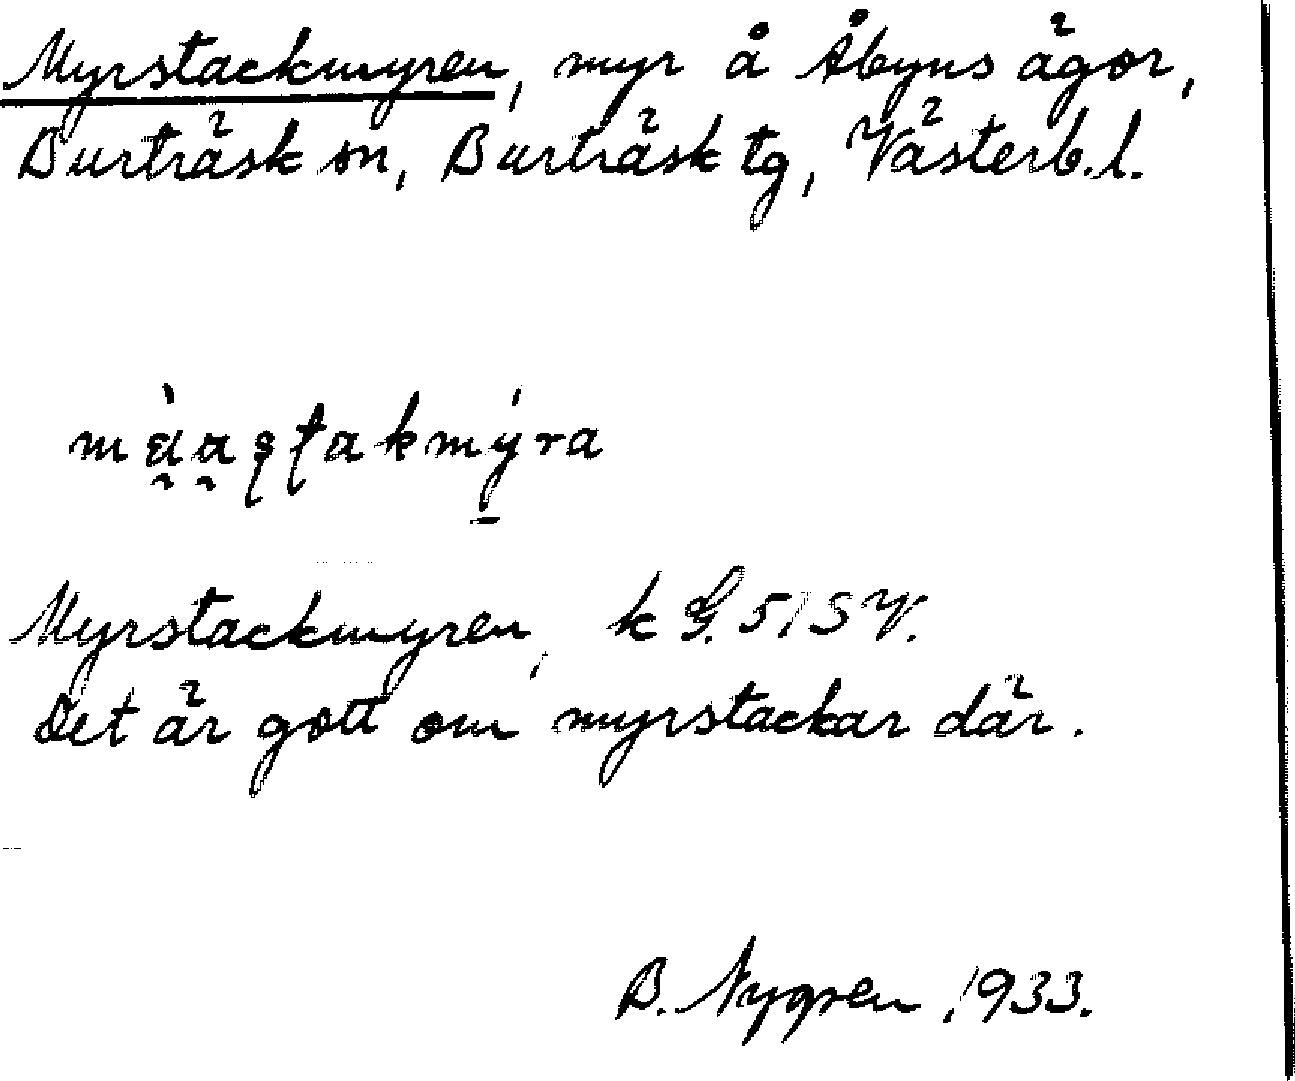 Myrstackmyren, myr å Åbyns ägor,
Burträsk sn, Burträsk tg, Västerb.l.
Myrstackmyren, k G. 51 SV.
Det är gott om myrstackar där.
B. Nygren 1933.